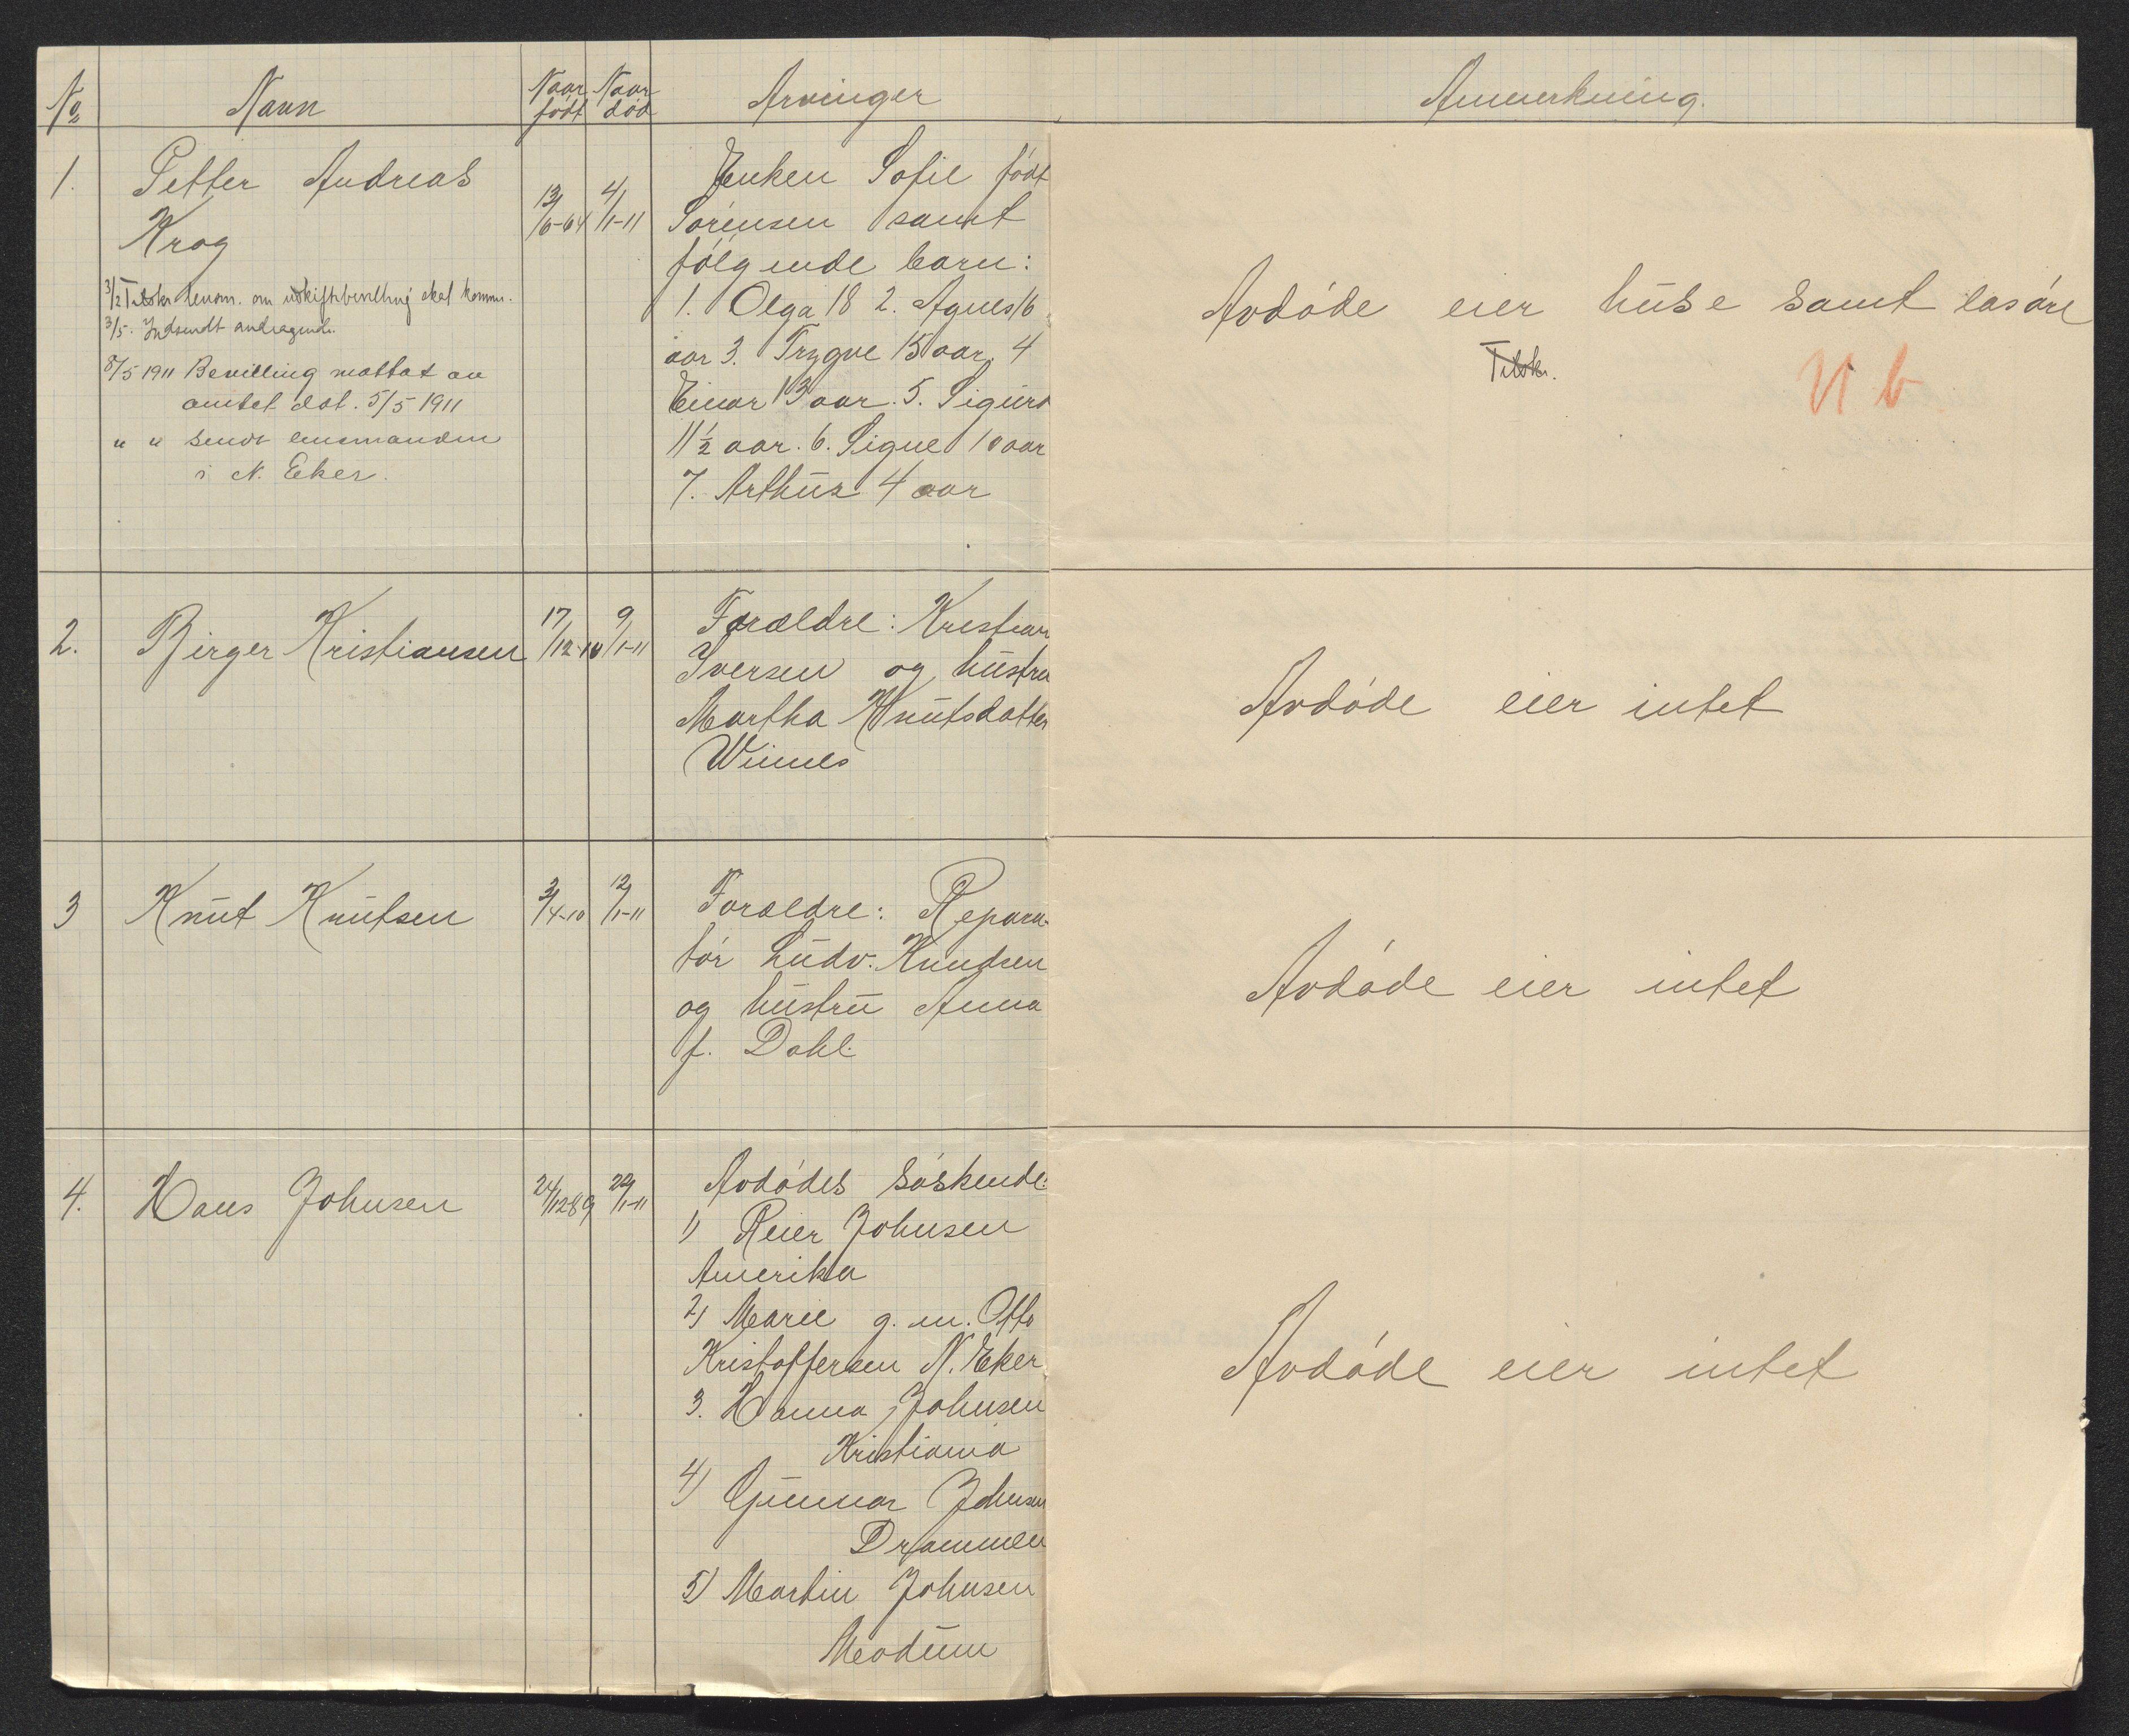 No Navn Naar født Naar død Arvinger Anmerkning.
1. Petter Andreas
Krog
13/6-64 4/1-11
3/2 Tilskr. lensm. om uskiftbevilling skal komme.
3/5. Indsendt andragende.
8/5 1911 Bevilling mottat av
amtet dat. 5/5 1911
" " sendt lensmanden
i N. Eker.
Enken Sofie født
Sørensen samt
følgende barn:
1. Olga 18 2. Agnes 16
aar 3. Trygve 15 aar, 4
Einar 13 aar. 5. Sigurd
11 1/2 aar. 6. Signe 10 aar
7. Arthur 4 aar
Avdøde eier huse samt løsøre
Tilskr.
U b
2. Birger Kristiansen 17/12-10 9/1-11
Forældre: Kristian
Iversen og hustru
Martha Knutsdatter
Avdøde eier intet
3 Knut Knutsen 3/4-10 12/1-11
Forældre: Repara-
tør Ludv. Knudsen
og hustru Anna
f. Dahl.
Avdøde eier intet
4. Hans Johnsen 24/12 89 22/1-11
Avdødes søskende:
1) Reier Johnsen
Amerika
2) Marie g. m. Otto
Kristoffersen N. Eker
3. Hanna Johnsen
Kristiania
4) Gunnar Johnsen
Drammen
5) Martin Johnsen
Modum
Avdøde eier intet